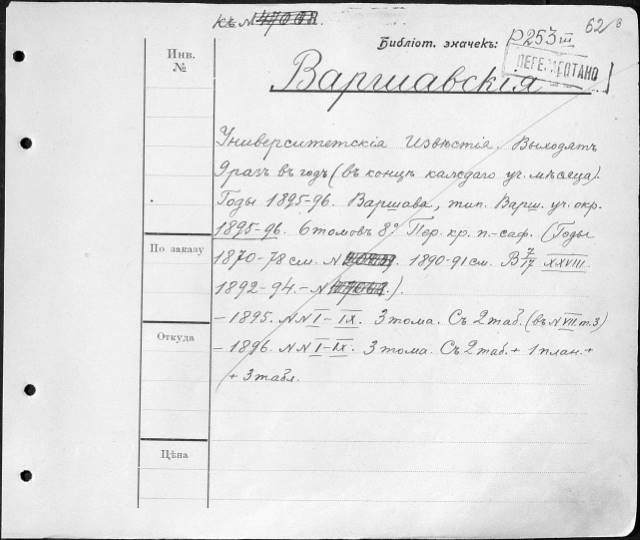 къ N 47008.
62/8
Библіот. значекъ: P 253 III
Инв. №
ПЕРЕ
БОТАНО
Варшавскія
Университетскія Извѣстія. Выходятъ
9 разъ въ годъ (въ концѣ каждаго уч. мѣсяца).
Годы 1895-96. Варшава, тип. Варш. уч. окр.
1895-96. 6 томовъ 8° Пер. кр. п.-саф. (Годы
По заказу
1870-78 см. N 1890-91 см. B 7/17 XXVIII
1892-94.- N ).
– 1895. NN I – IX. 3 тома. Съ 2 таб. (въ N VII т. 3)
Откуда
– 1896. NN I-IX. 3 тома. Съ 2 таб. + 1 план. +
+ 3 табл.
Цѣна